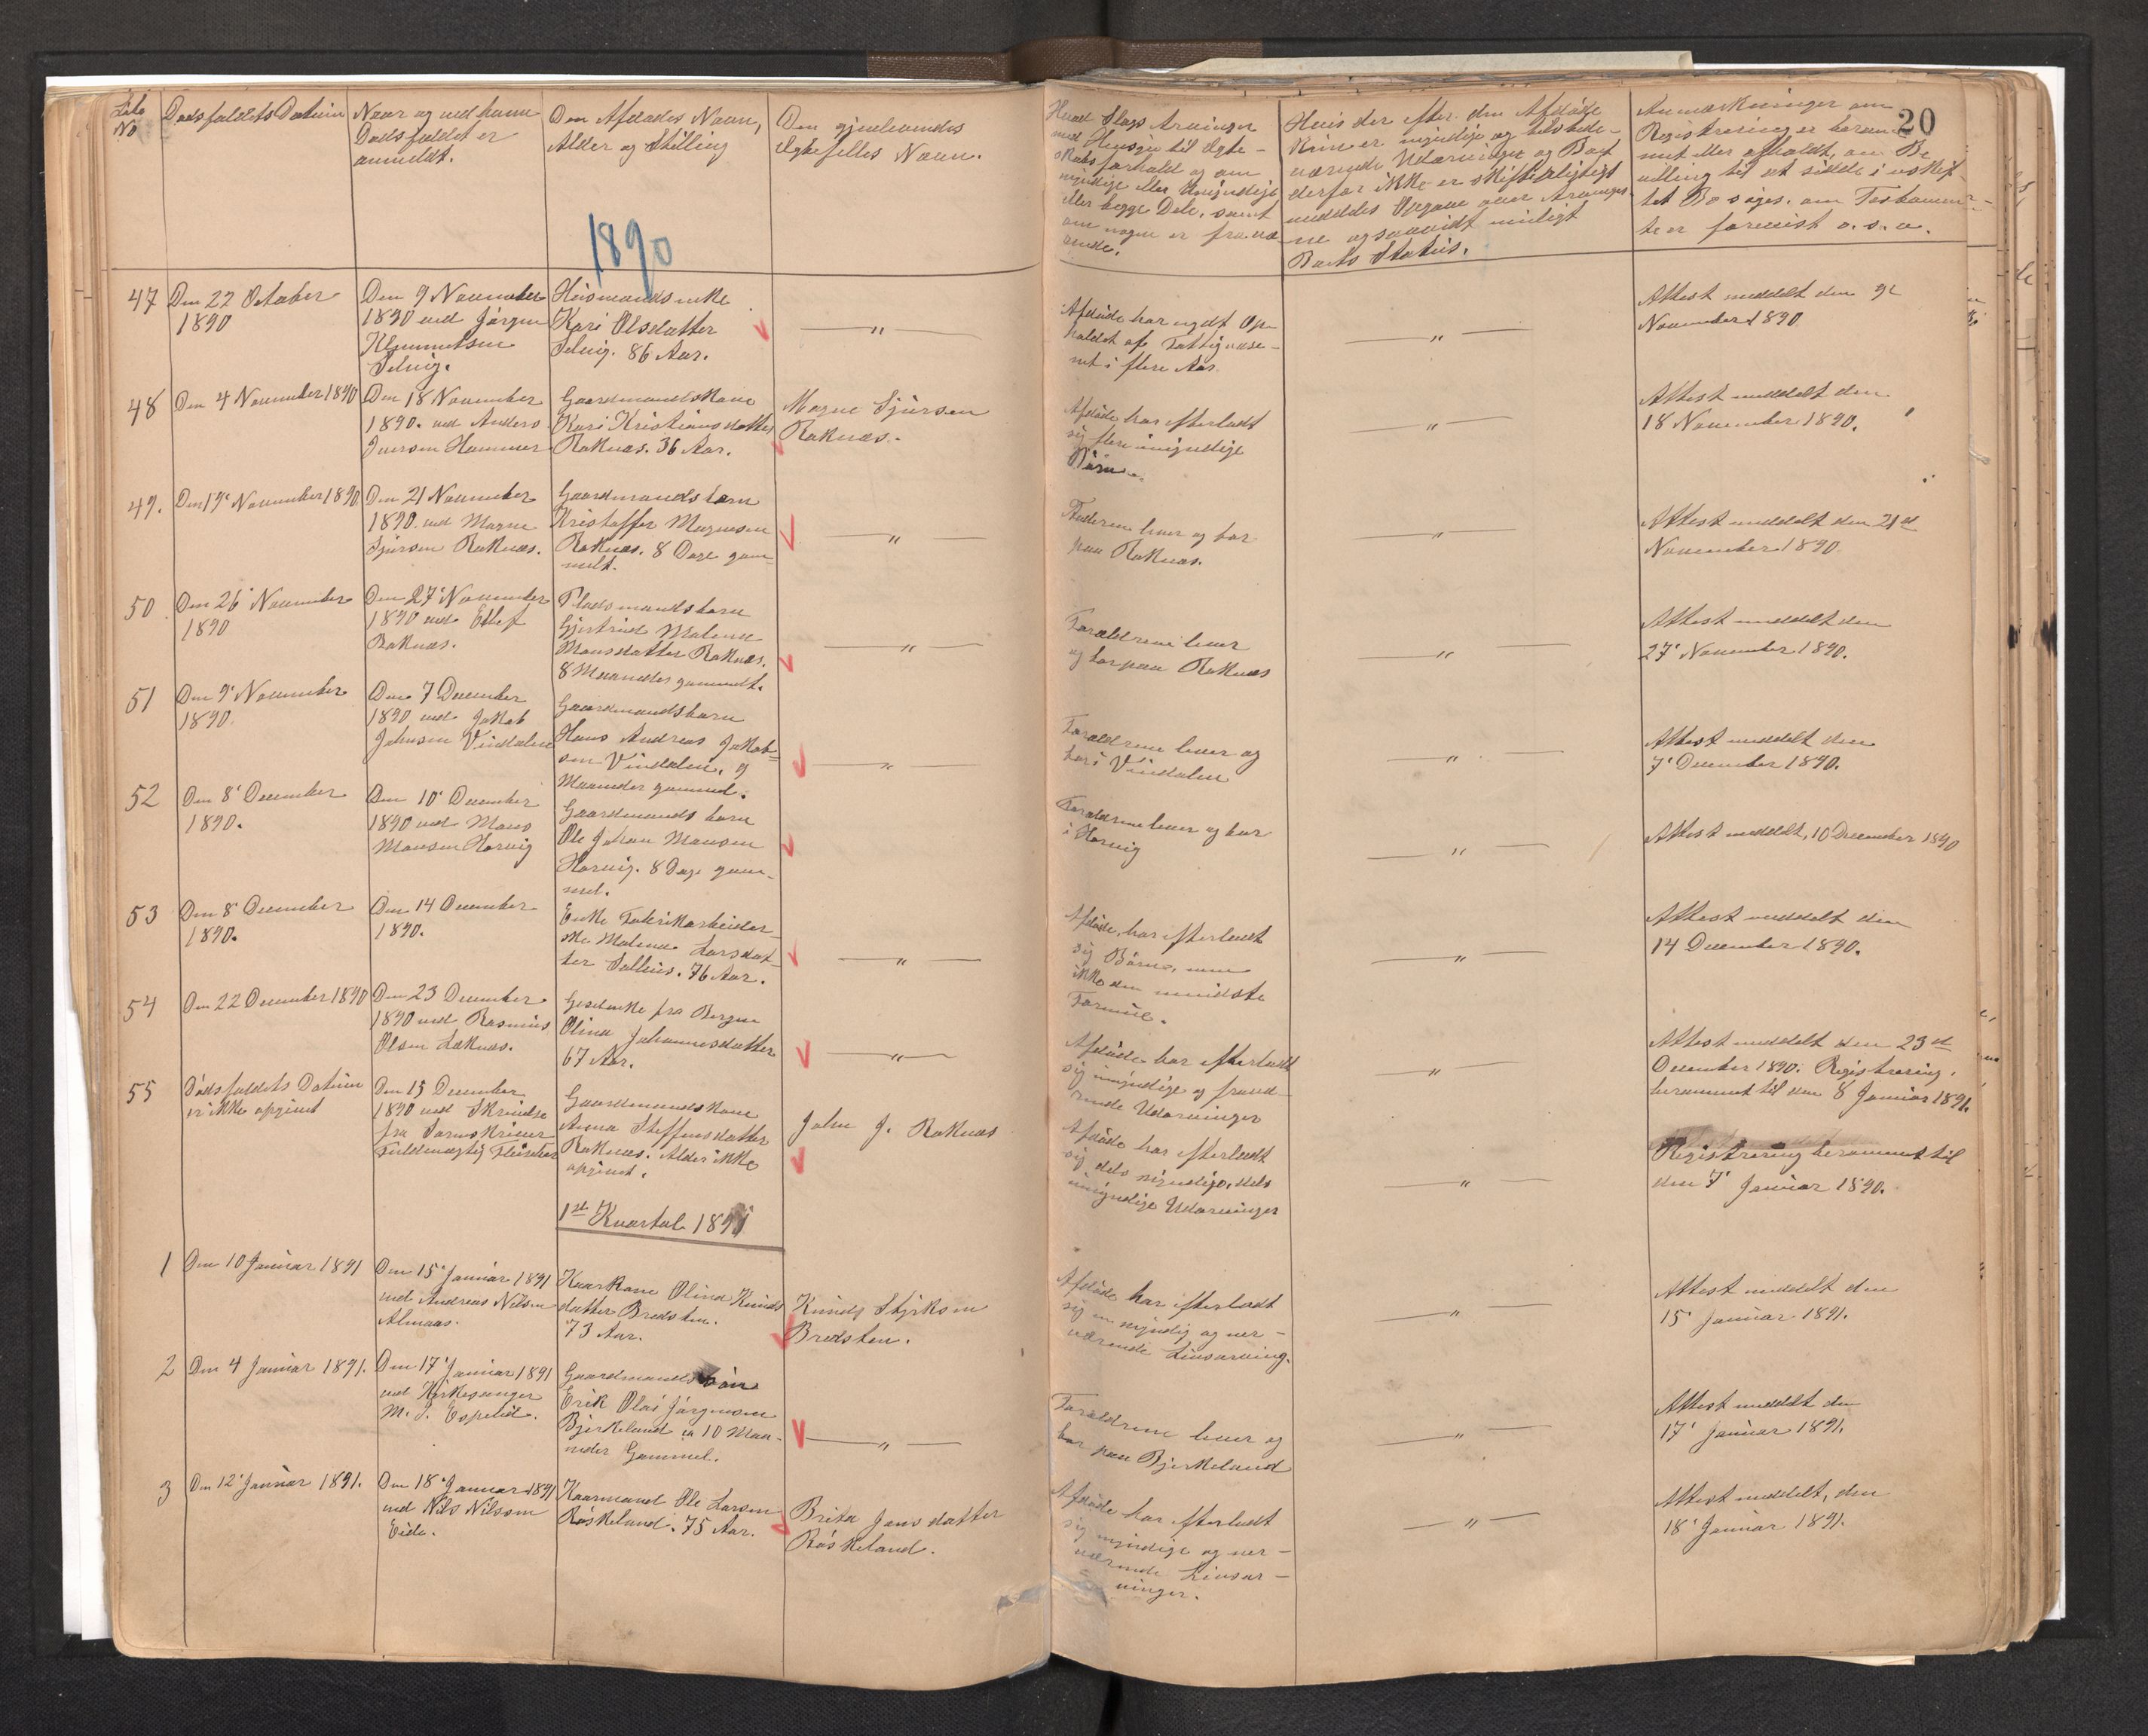 Löbe
No
Dødsfaldets Datum
Naar og ved hvem
Dødsfaldet er
anmeldt.
Den Afdødes Navn,
Alder og Stilling
Den gjenlevendes
Egtefelles Navn.
Hvad Slags Arvinger
med Hensyn til Egte-
skabsforhold og om
myndige eller Umyndige
eller begge Dele, samt
om nogen er fravæ-
rende.
Hvis der efter den Afdøde
kun er myndige og tilstede-
værende Udarvinger og Boet
derfor ikke er skiftepligtigt
meddeles Opgave over Arvinger-
ne og saavidt muligt
Boets Status.
Anmærkninger om
Registrering er beram-
met eller afholdt, om Be
villing til at sidde i uskif-
tet Bo søges, om Testamen-
te er forevist o.s.v.
20
1890
47
Den 22 October
1890
Den 9 November
1890 ved Jörgen
Klemmetsen
Selvig.
Husmandsenke
Kari Olsdatter
Selvig. 86 Aar.
— " —
Afdøde har nydt Op-
holdet af Fattigvæse-
net i flere Aar.
— " —
Attest meddelt den 9de
November 1890
48
Den 4 November 1890
Den 18 November
1890. ved Anders
Iversen Hammer
Gaardmandskone
Kari Kristiansdatter
Raknæs. 36 Aar.
Magne Sjursen
Raknæs.
Afdøde har efterladt
sig flere umyndige
Børn.
— " —
Attest meddelt den
18 November 1890.
49.
Den 19 November 1890
Den 21 November
1890. ved Magne
Sjursen Raknæs.
Gaardmandsbarn
Kristoffer Magnesen
Raknæs. 8 Dage gam-
melt.
— " —
Faderen lever og bor
paa Raknæs.
— " —
Attest meddelt den 21de
November 1890.
50
Den 26 November
1890
Den 27 November
1890 ved Ellef
Raknæs.
Pladsmandsbarn
Gjertrud Malene
Monsdatter Raknæs.
8 Maaneder gammelt.
— " —
Forældrene lever
og bor paa Raknæs
— " —
Attest meddelt den
27 November 1890.
51
Den 9 November
1890.
Den 7 December
1890 ved Jakob
Johnsen Vindalen
Gaardmandsbarn
Hans Andreas Jakob-
sen Vindalen. 9
Maaneder gammel.
— " —
Forældrene lever og
bor i Vindalen
— " —
Attest meddelt den
7 December 1890.
52
Den 8 December
1890.
Den 10 December
1890 ved Mons
Monsen Horvig
Gaardmands barn
Ole Johan Monsen
Horvig. 8 Dage gam-
mel.
— " —
Forældrene lever og bor
i Horvig
— " —
Attest meddelt, 10 December 1890
53
Den 8 December
1890.
Den 14 December
1890.
Enke Fabrikarbeider-
ske Malene Larsdat-
ter Salhus. 76 Aar.
— " —
Afdøde har efterladt
sig Børn, men
ikke den mindste
Formue.
— " —
Attest meddelt den
14 December 1890.
54
Den 22 December 1890
Den 23 December
1890 ved Rasmus
Olsen Loknæs.
fra Bergen
Olina Johannesdatter
67 Aar.
— " —
Afdøde har efterladt
sig umyndige og fravæ-
rende Udarvinger
— " —
Attest meddelt den 23de
December 1890. Registrering
berammet til den 8 Januar 1891.
55
Dødsfaldets Datum
er ikke opgivet
Den 15 December
1890 ved Skrivelse
fra Sorenskriver
Fuldmægtig
Gaardmandskone
Anna Steffensdatter
Raknæs. Alder ikke
opgivet.
John J. Raknæs
Afdøde har efterladt
sig dels myndige, dels
umyndige Udarvinger
— " —
Registrering berammet til
den 7 Januar 1890.
1ste Kvartal 1891
1
Den 10 Januar 1891
Den 15 Januar 1891
ved Andreas Nilsen
Almaas.
Kaarkone Olina Knuds
datter Bredsten.
73 Aar.
Knud Styrksen
Bredsten.
Afdøde har efterladt
sig en myndig og nær-
værende Livsarving.
— " —
Attest meddelt den
15 Januar 1891.
2
Den 4 Januar 1891.
Den 17 Januar 1891
ved Kirkesanger
M. J. Espelid.
Gaardmandssøn
Erik Olai Jørgensen
Bjerkeland ca 10 Maa-
neder Gammel.
— " —
Forældrene lever og
bor paa Bjerkeland
— " —
Attest meddelt den
17 Januar 1891.
3
Den 12 Januar 1891.
Den 18 Januar 1891
ved Nils Nilsen
Eide.
Kaarmand Ole Larsen
Röskeland. 75 Aar.
Brita Jansdatter
Röskeland.
Afdøde har efterladt
sig myndige og nær-
værende Livsar-
vinger.
— " —
Attest meddelt, den
18 Januar 1891.